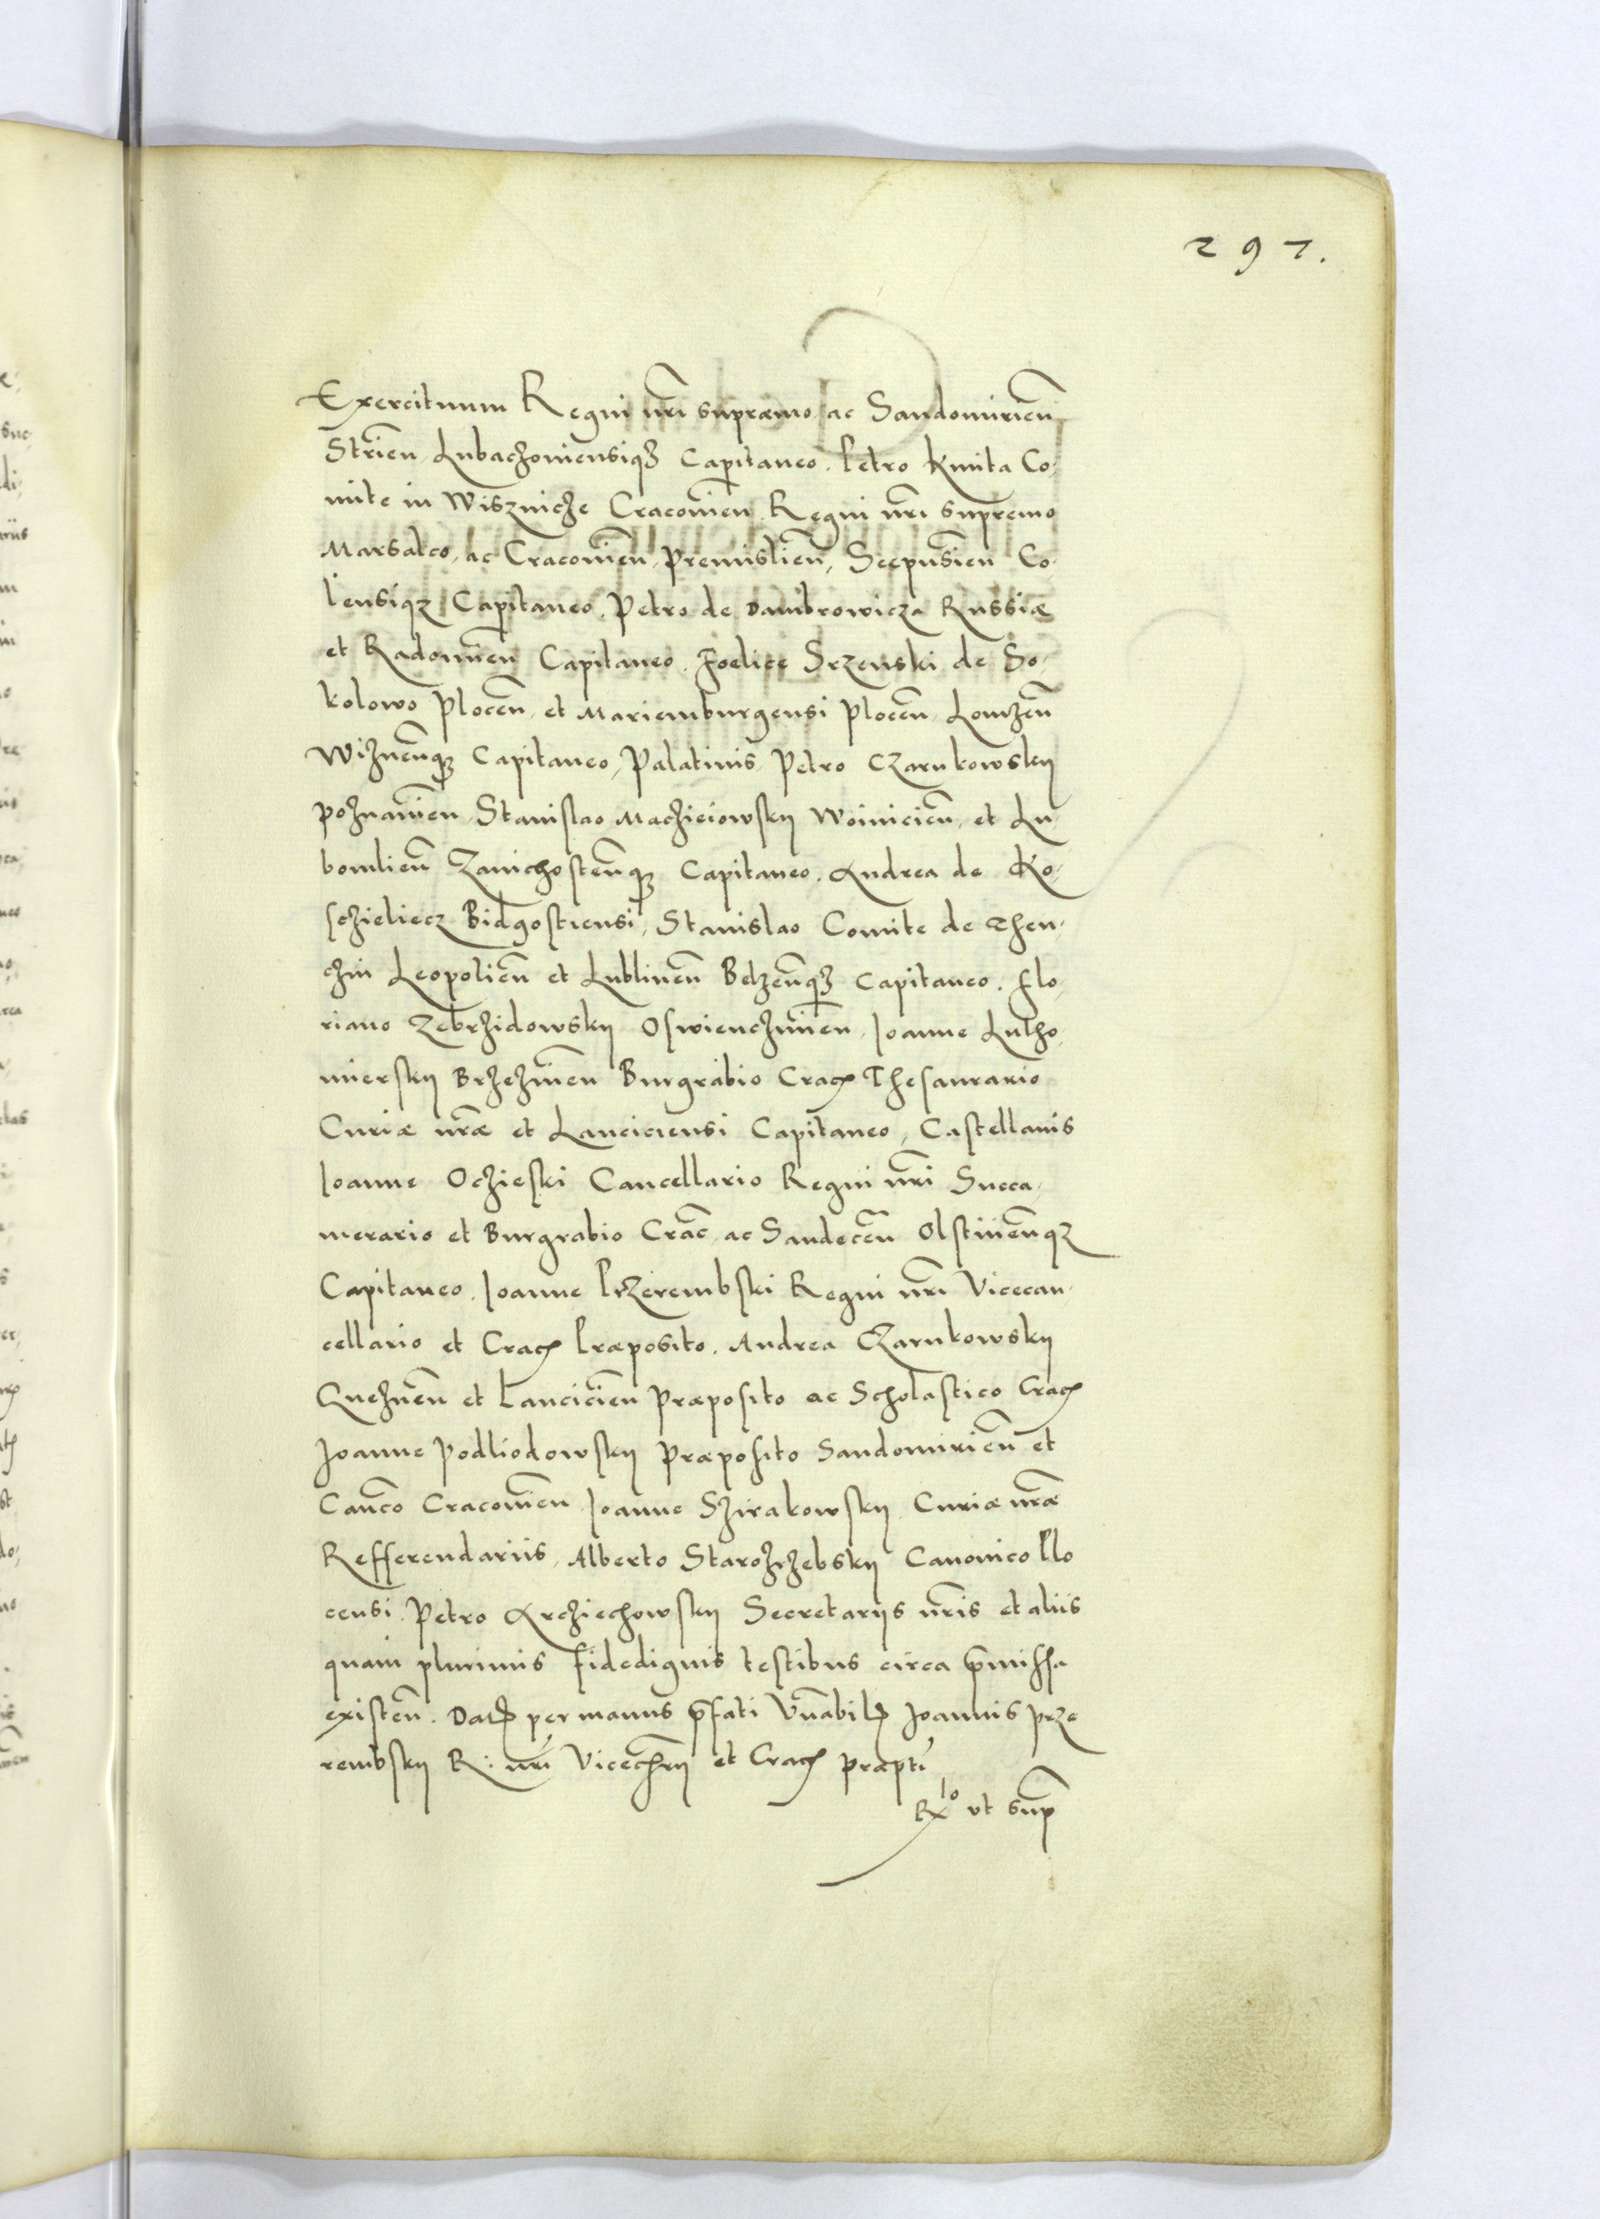 297.
Exercituum Regni nr̃i supræmo ac Sandomirien̄
Strien̄ Lubachoviensiqȝ Capitaneo. Petro Kmita Co-
mite in Wisznicze Cracovien̄. Regni nr̃i supremo
Marsalco, ac Cracovien̄, Premislien̄, Scepusien̄ Co-
lensiqȝ Capitaneo. Petro de Dambrowicza Russiæ
et Radomien̄ Capitaneo. Foelice Srzenski de So-
kolowo Plocen̄, et Mariemburgensi Plocen̄ Lomzen̄
Wiznen̄qȝ Capitaneo, Palatinis, Petro Czarnkowskij
poznanien̄ Stanislao Maczieiowskij Woinicien̄, et Lu
bomlien̄ Zavichosten̄qȝ Capitaneo. Andrea de Ko-
sczieliecz Bidgostiensi, Stanislao Comite de Then-
czin Leopolien̄ et Lublinen̄ Belzen̄qȝ Capitaneo. Flo-
riano Zebrzidowskij Oswienczimen̄. Joanne Lutho-
mierskij Brzezinen̄ Burgrabio Crac̄ Thesaurario
Curiæ nr̃æ et Lanciciensi Capitaneo, Castellanis
Joanne Oczieski Cancellario Regni nr̃i Succa-
merario et Burgrabio Crac̄ ac Sandecen̄ Olstinen̄qȝ
Capitaneo. Joanne Przerembski Regni nr̃i Vicecan-
cellario et Crac̄ Præposito. Andrea Czarnkowskij
Gneznen̄ et Lancicien̄ Præposito ac Scholastico Crac̄
Joanne Podliodowskij Præposito Sandomirien̄ et
Can̄co Cracovien̄ Joanne Szirakowskij Curiæ nr̃æ
Refferendariis, Alberto Starozrzebskij Canonico Plo
censi. Petro Arcziechowskij Secretarijs nr̃is et aliis
quam plurimis fidedignis testibus circa p̄missa
existen̄. Datȝ per manus p̄fati Vn̄abilȝ Joannis Prze
rembskij R: nr̃i Vicechn̄rij et Crac̄ præpti
Rxº ut sup̄